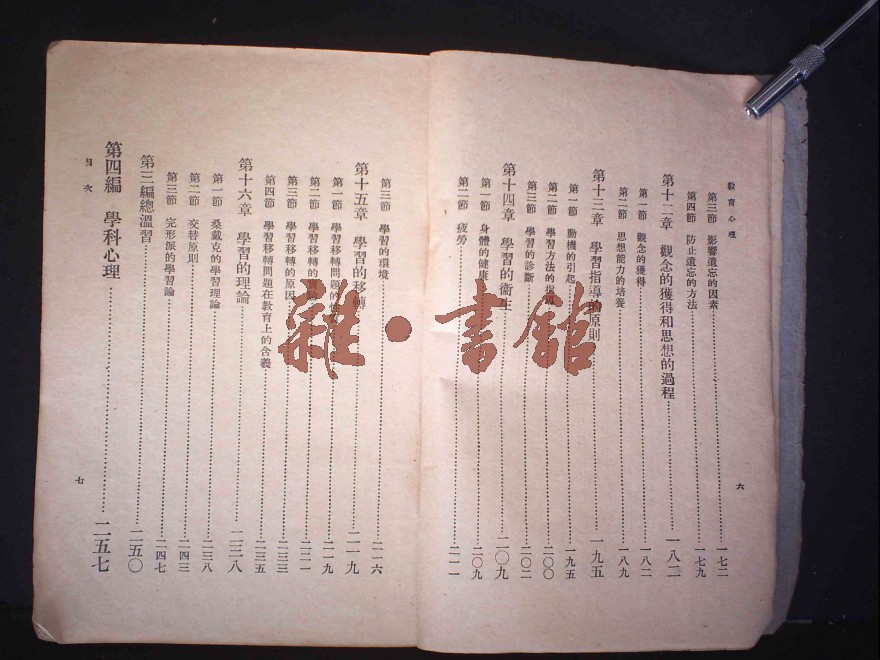 教育心理
第三節 影響遺忘的因素 一七二
第四節 防止遺忘的方法 一七九
第十二章 觀念的獲得和思想的過程 一八二
第一節 觀念的獲得 一八二
第二節 思想能力的培養 一八九
第十三章 學習指導的原則 一九五
第一節 動機的引起 一九五
第二節 學習方法的 二〇〇
第三節 學習的診斷 二〇二
第十四章 學習的衞生 二〇九
第一節 身體的健康 二〇九
第二節 疲勞 二一一
六
第三節 學習的環境 二一六
第十五章 學習的移轉 二一九
第一節 學習移轉問題的 二一九
第二節 學習移轉的 二二一
第三節 學習移轉的原因 二三三
第四節 學習移轉問題在教育上的含義 二三五
第十六章 學習的理論 二三八
第一節 桑戴克的學習理論 二三八
第二節 交替原則 二四三
第三節 完形派的學習論 二四七
第三編總溫習 二五〇
第四編 學科心理 二五七
目次
七
雜·書館